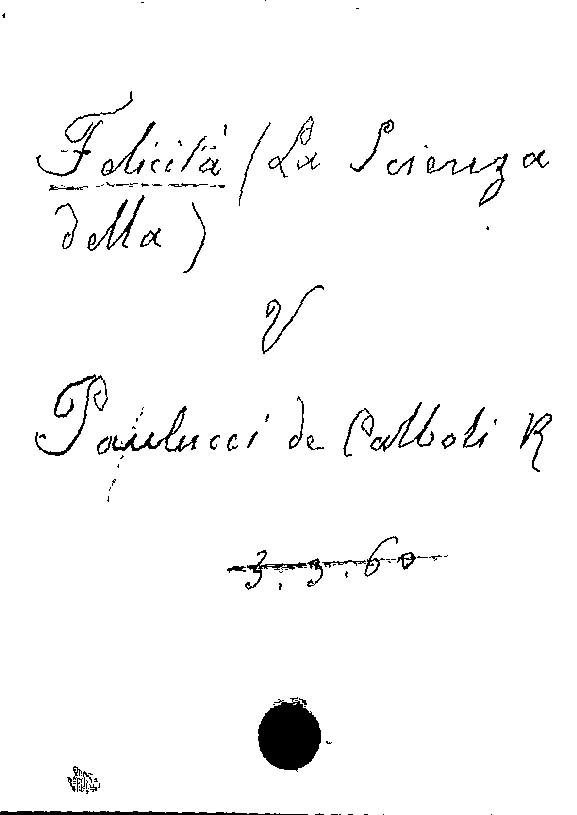 Felicità (La Scienza
della)
V
Paulucci de Calboli R
3.3.60